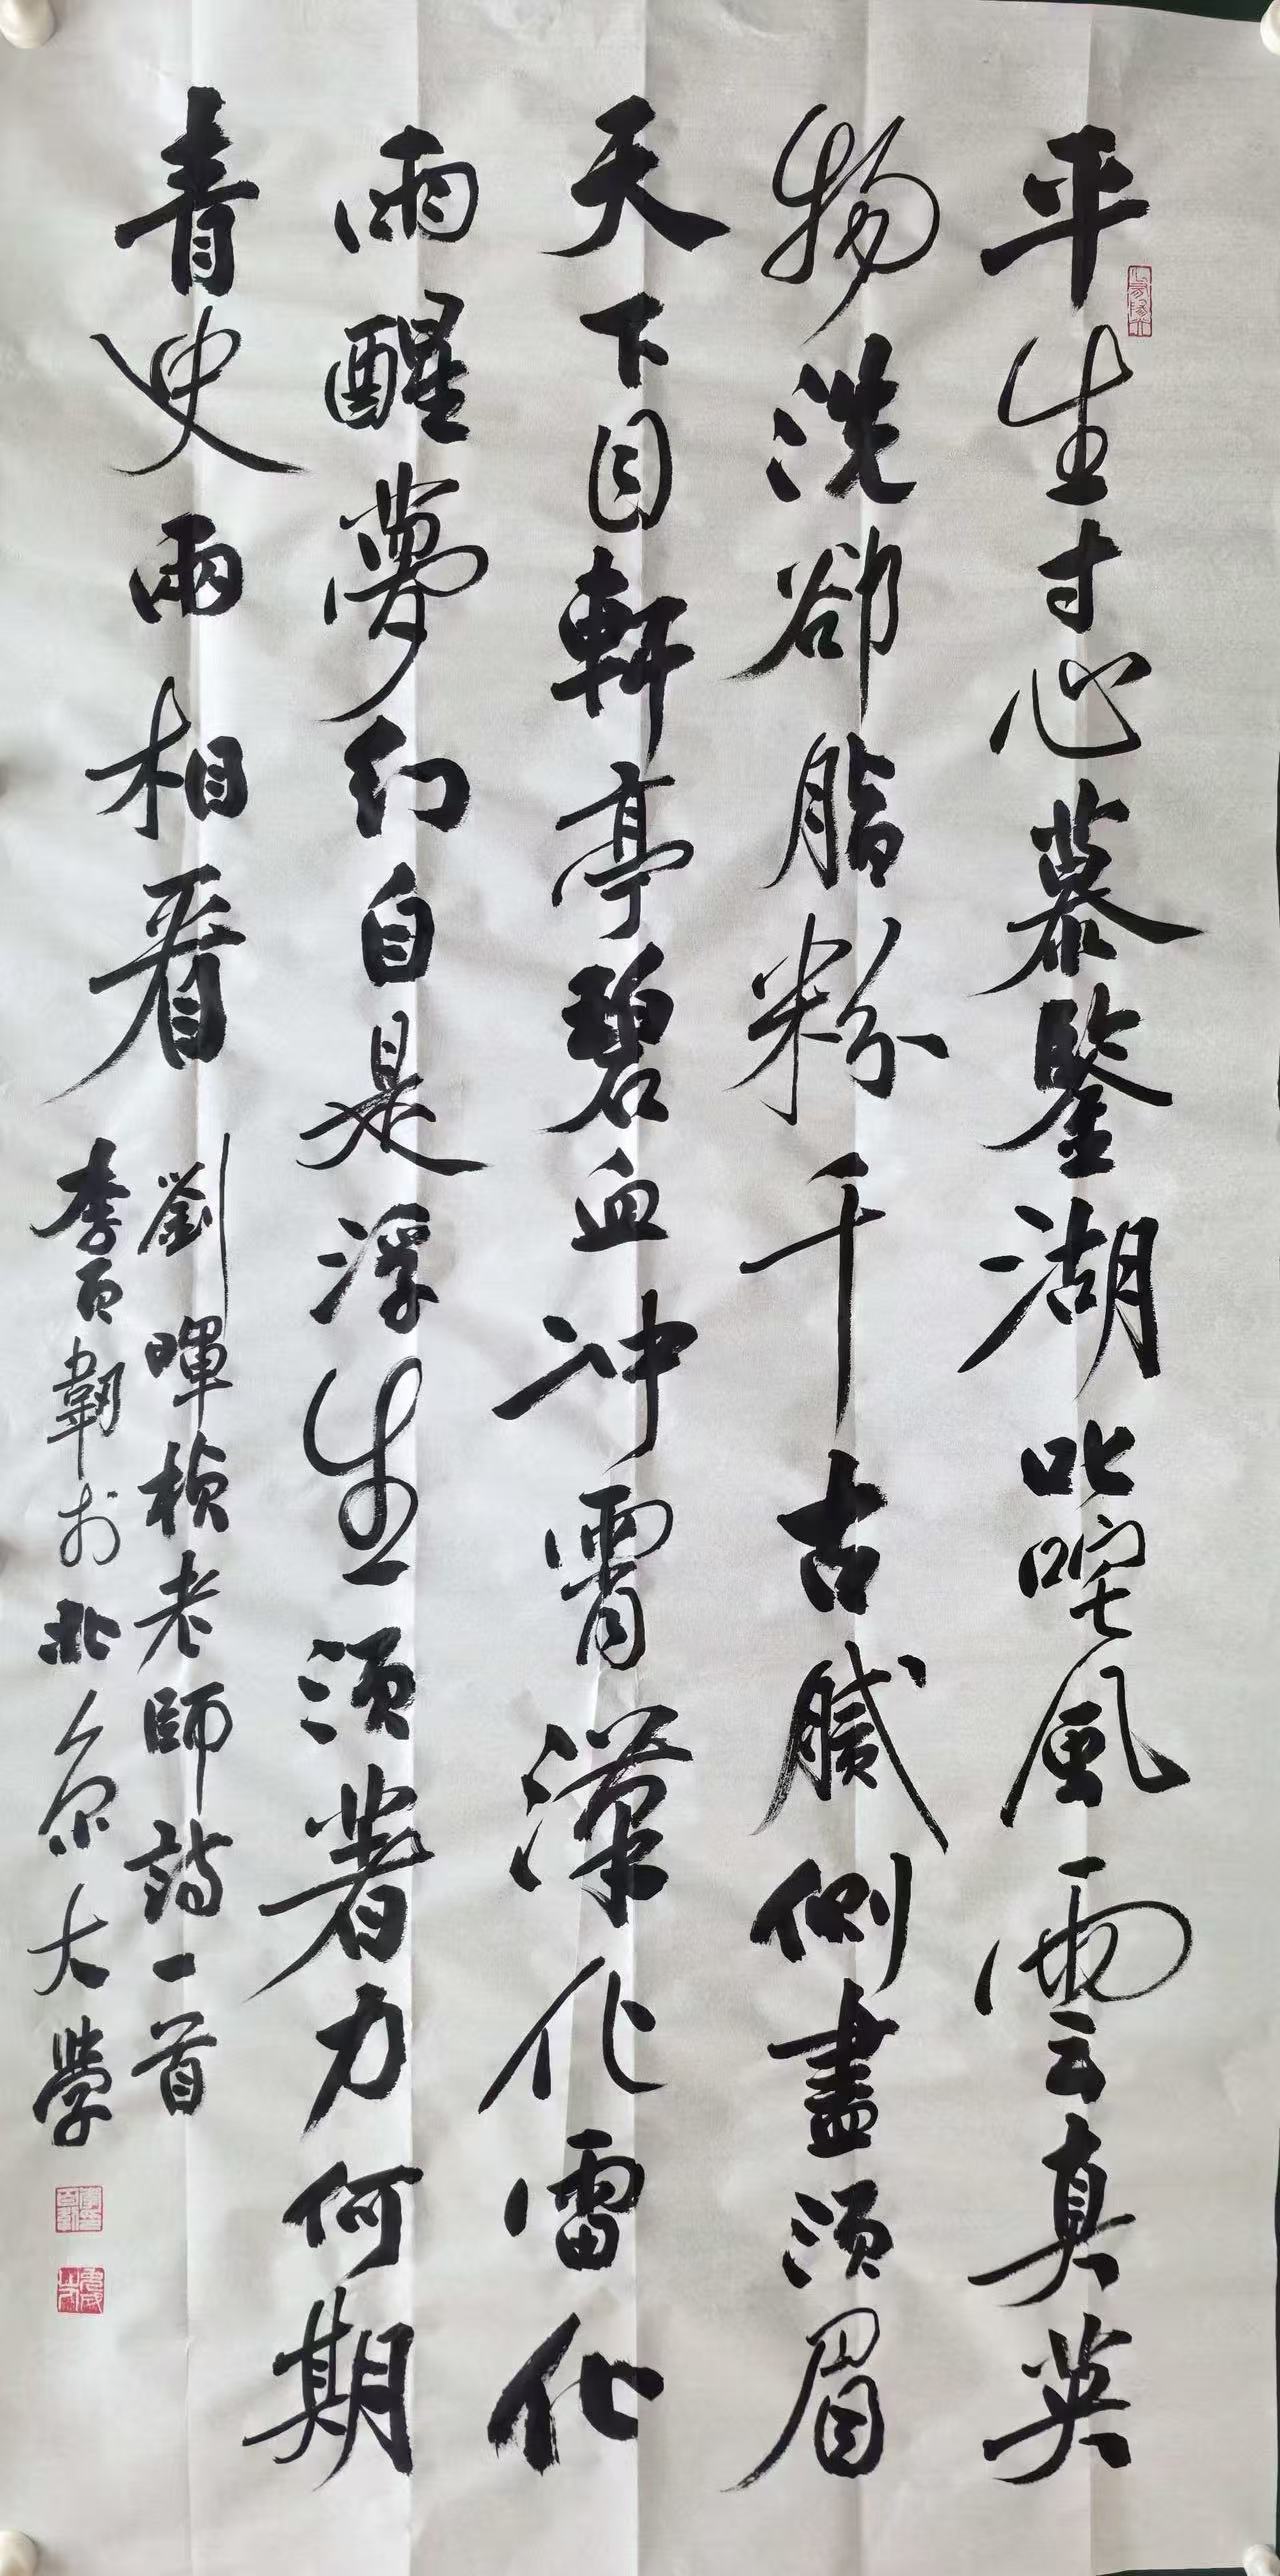 平生寸心慕鑒湖叱咤風雲真英
物洗卻脂粉千古膩側盡須眉
天下目軒亭碧血冲霄漢化雷化
雨醒夢幻自是浮生須著力何期
青史兩相看
劉暉楨老師詩一首
李百韌於北京大學